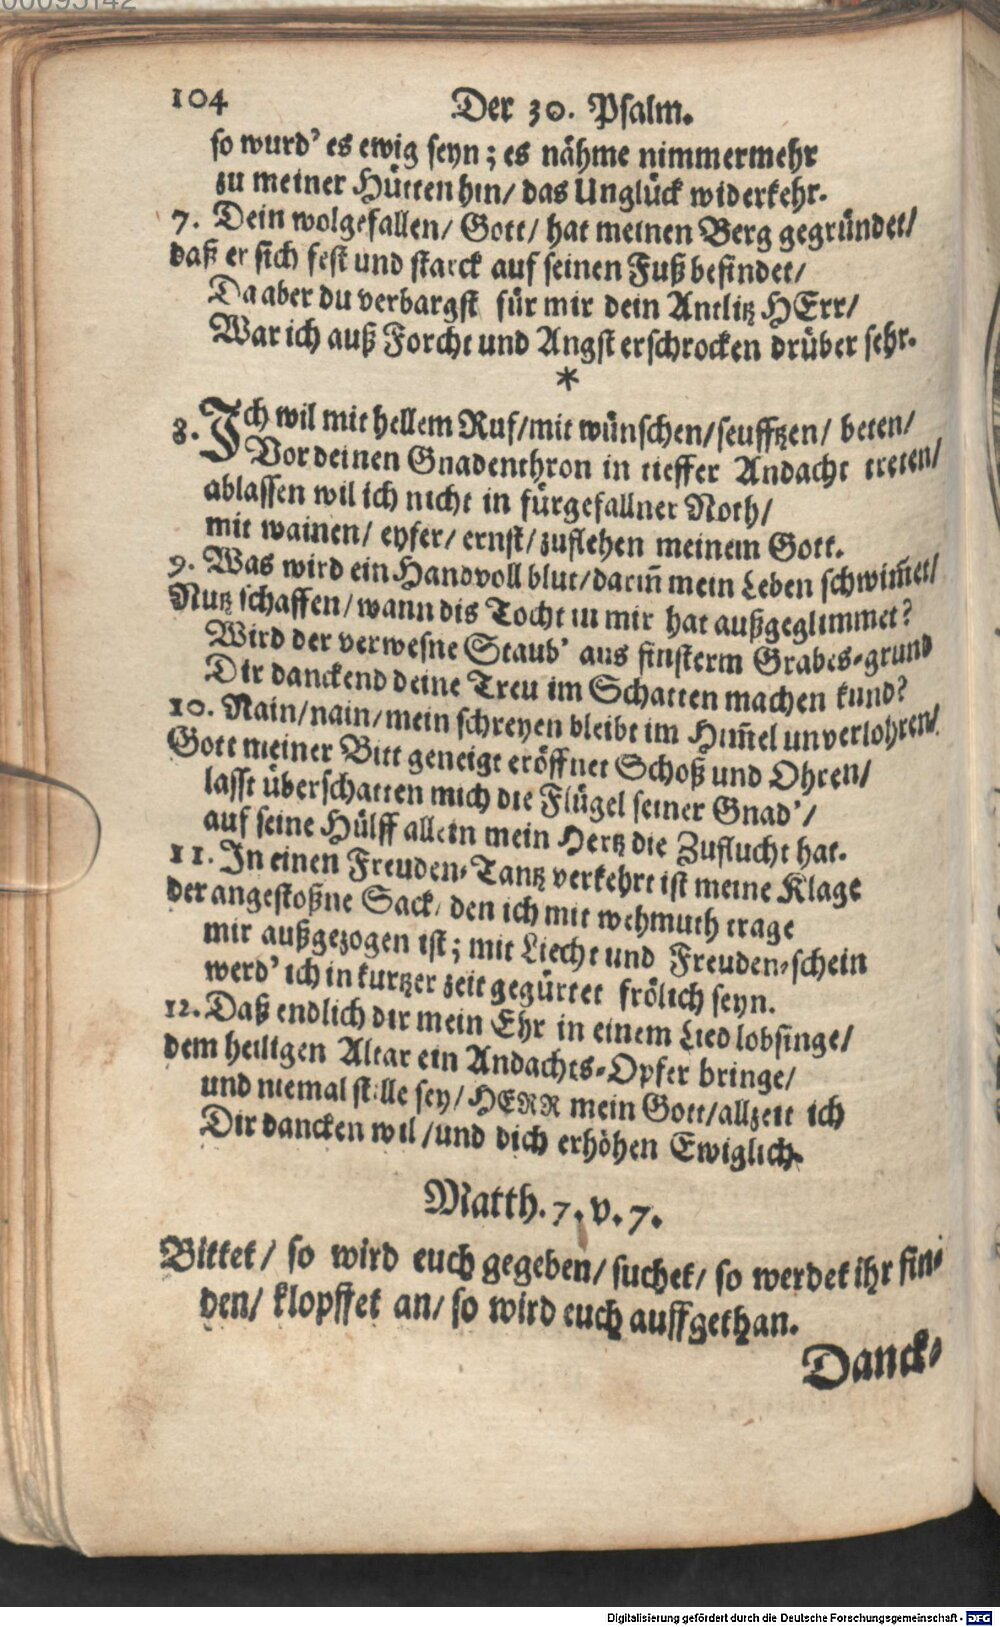 104
Der 30. Psalm.
so wurd' es ewig seyn; es nähme nimmermehr
zu meiner Hütten hin/ das Unglück widerkehr.
7. Dein wolgefallen/ Gott/ hat meinen Berg gegründet/
daß er sich fest und starck auf seinen Fuß befindet/
Da aber du verbargst für mir dein Antlitz HErr/
War ich auß Forcht und Angst erschrocken drüber sehr.
*
8. Ich wil mit hellem Ruf/mit wünschen/seufftzen/ beten/
Vor deinen Gnadenthron in tieffer Andacht treten/
ablassen wil ich nicht in fürgefallner Noth/
mit wainen/ eyfer/ ernst/ zuflehen meinem Gott.
9. Was wird ein Handvoll blut/darin̄ mein Leben schwim̄et/
Nutz schaffen/wann dis Tocht in mir hat außgeglimmet?
Wird der verwesne Staub' aus finsterm Grabes-grund
Dir danckend deine Treu im Schatten machen kund?
10. Nain/nain/mein schreyen bleibt im Him̄el unverlohren/
Gott meiner Bitt geneigt eröffnet Schoß und Ohren/
lasst überschatten mich die Flügel seiner Gnad'/
auf seine Hülff allein mein Hertz die Zuflucht hat.
11. In einen Freuden-Tantz verkehrt ist meine Klage
der angestoßne Sack/ den ich mit wehmuth trage
mir außgezogen ist; mit Liecht und Freuden-schein
werd' ich in kurtzer zeit gegürtet frölich seyn.
12. Daß endlich dir mein Ehr in einem Lied lobsinge/
dem heiligen Altar ein Andachts-Opfer bringe/
und niemal stille sey/ HERR mein Gott/allzeit ich
Dir dancken wil/und dich erhöhen Ewiglich.
Matth. 7. v. 7.
Bittet/ so wird euch gegeben/ suchet/ so werdet ihr fin-
den/ klopffet an/ so wird euch auffgethan.
Danck-
Digitalisierung gefördert durch die Deutsche Forschungsgemeinschaft - DFG